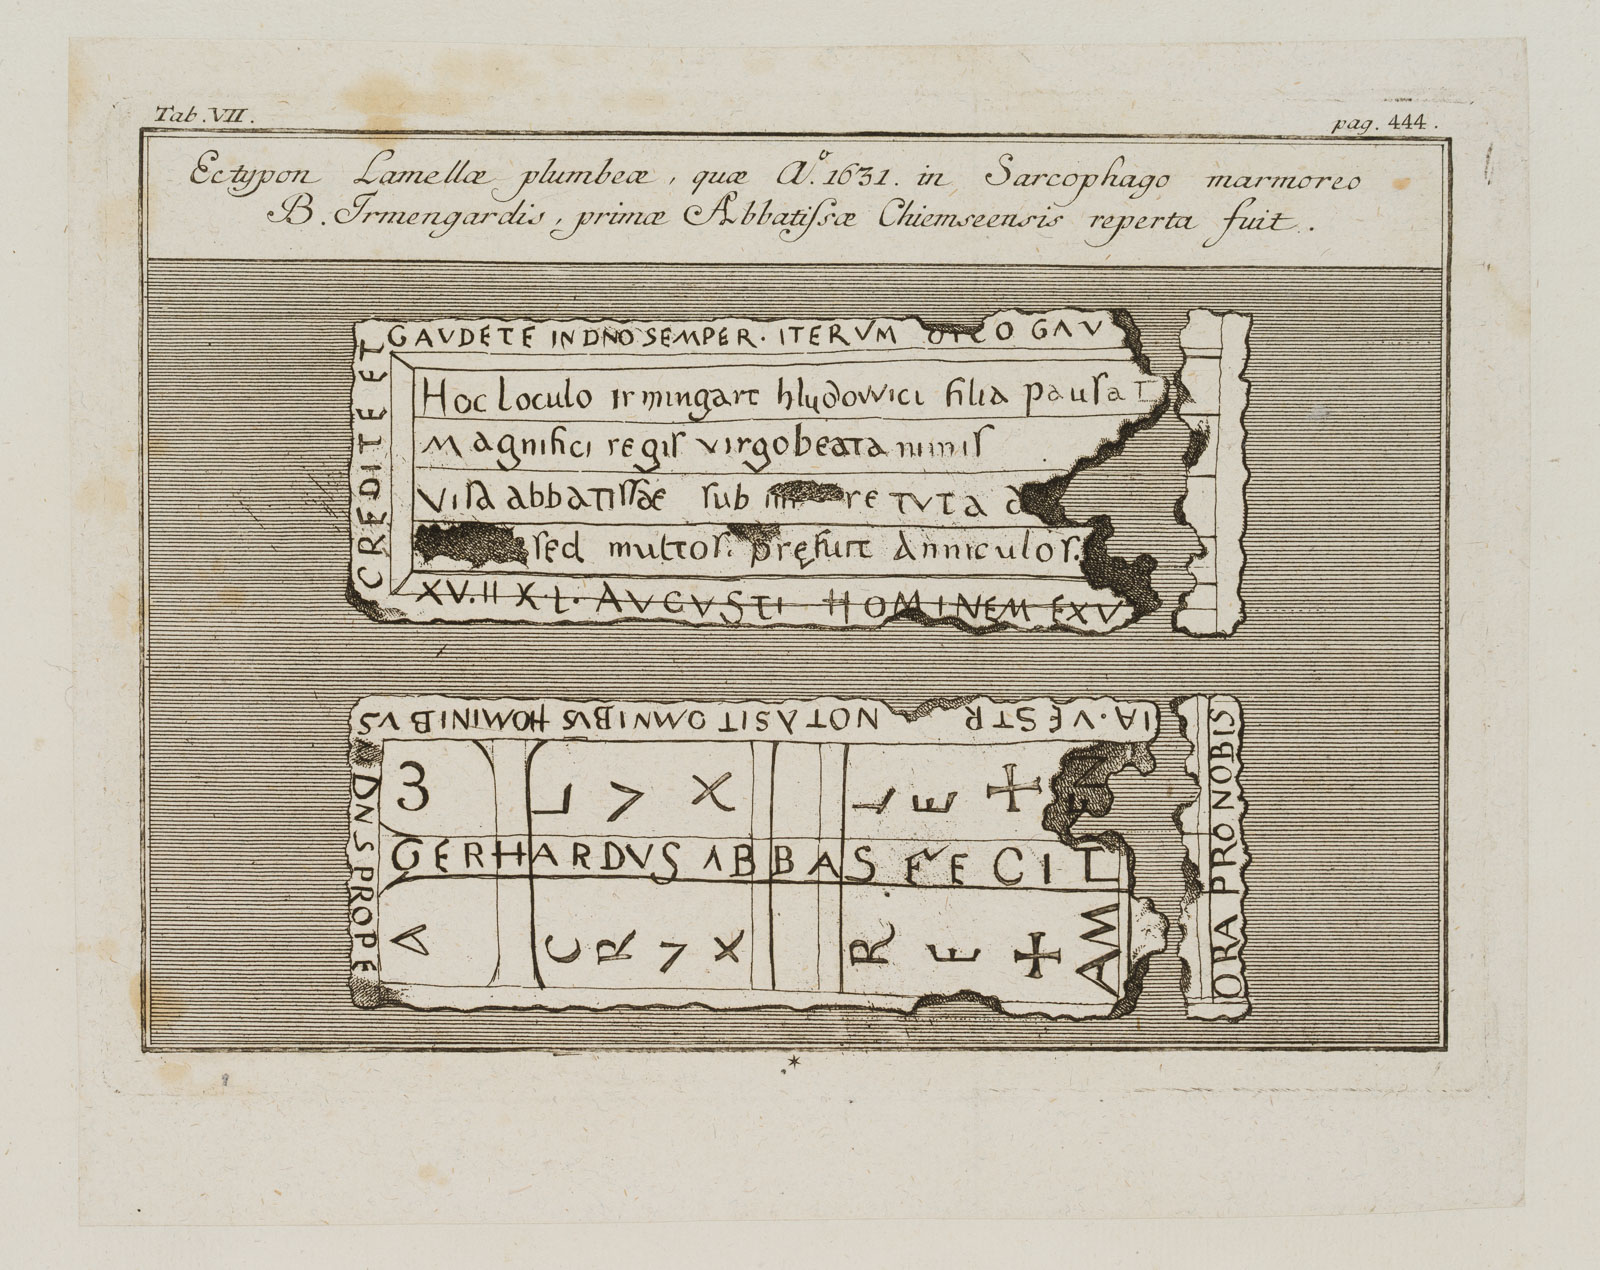 Tab. VII.
pag. 444.
Ectypon Lamellæ plumbeæ, quæ Aº. 1631. in Sarcophago marmoreo
B. Irmengardis, primæ Abbatiſsæ Chiemseensis reperta fuit.
GAVDETE IN DNO SEMPER. ITERVM O GAV
CREDITE ET
Hoc loculo irmingart hludowici filia pausat
Magnifici regiſ virgo beata nimiſ
Viſa abbatiſſae ſub re tvta
ſed multoſ. pręfuit anniculoſ.
XV.II KL. AVGVSTI HOMINEM EXV
IA. VESTR NOTA SIT OMNIBVS HOMINIBVS
DNS PROPE
3 L V X L E + EN
GERHARDVS ABBAS FECIT
A C R V X R. E + AM
ORA PRO NOBIS